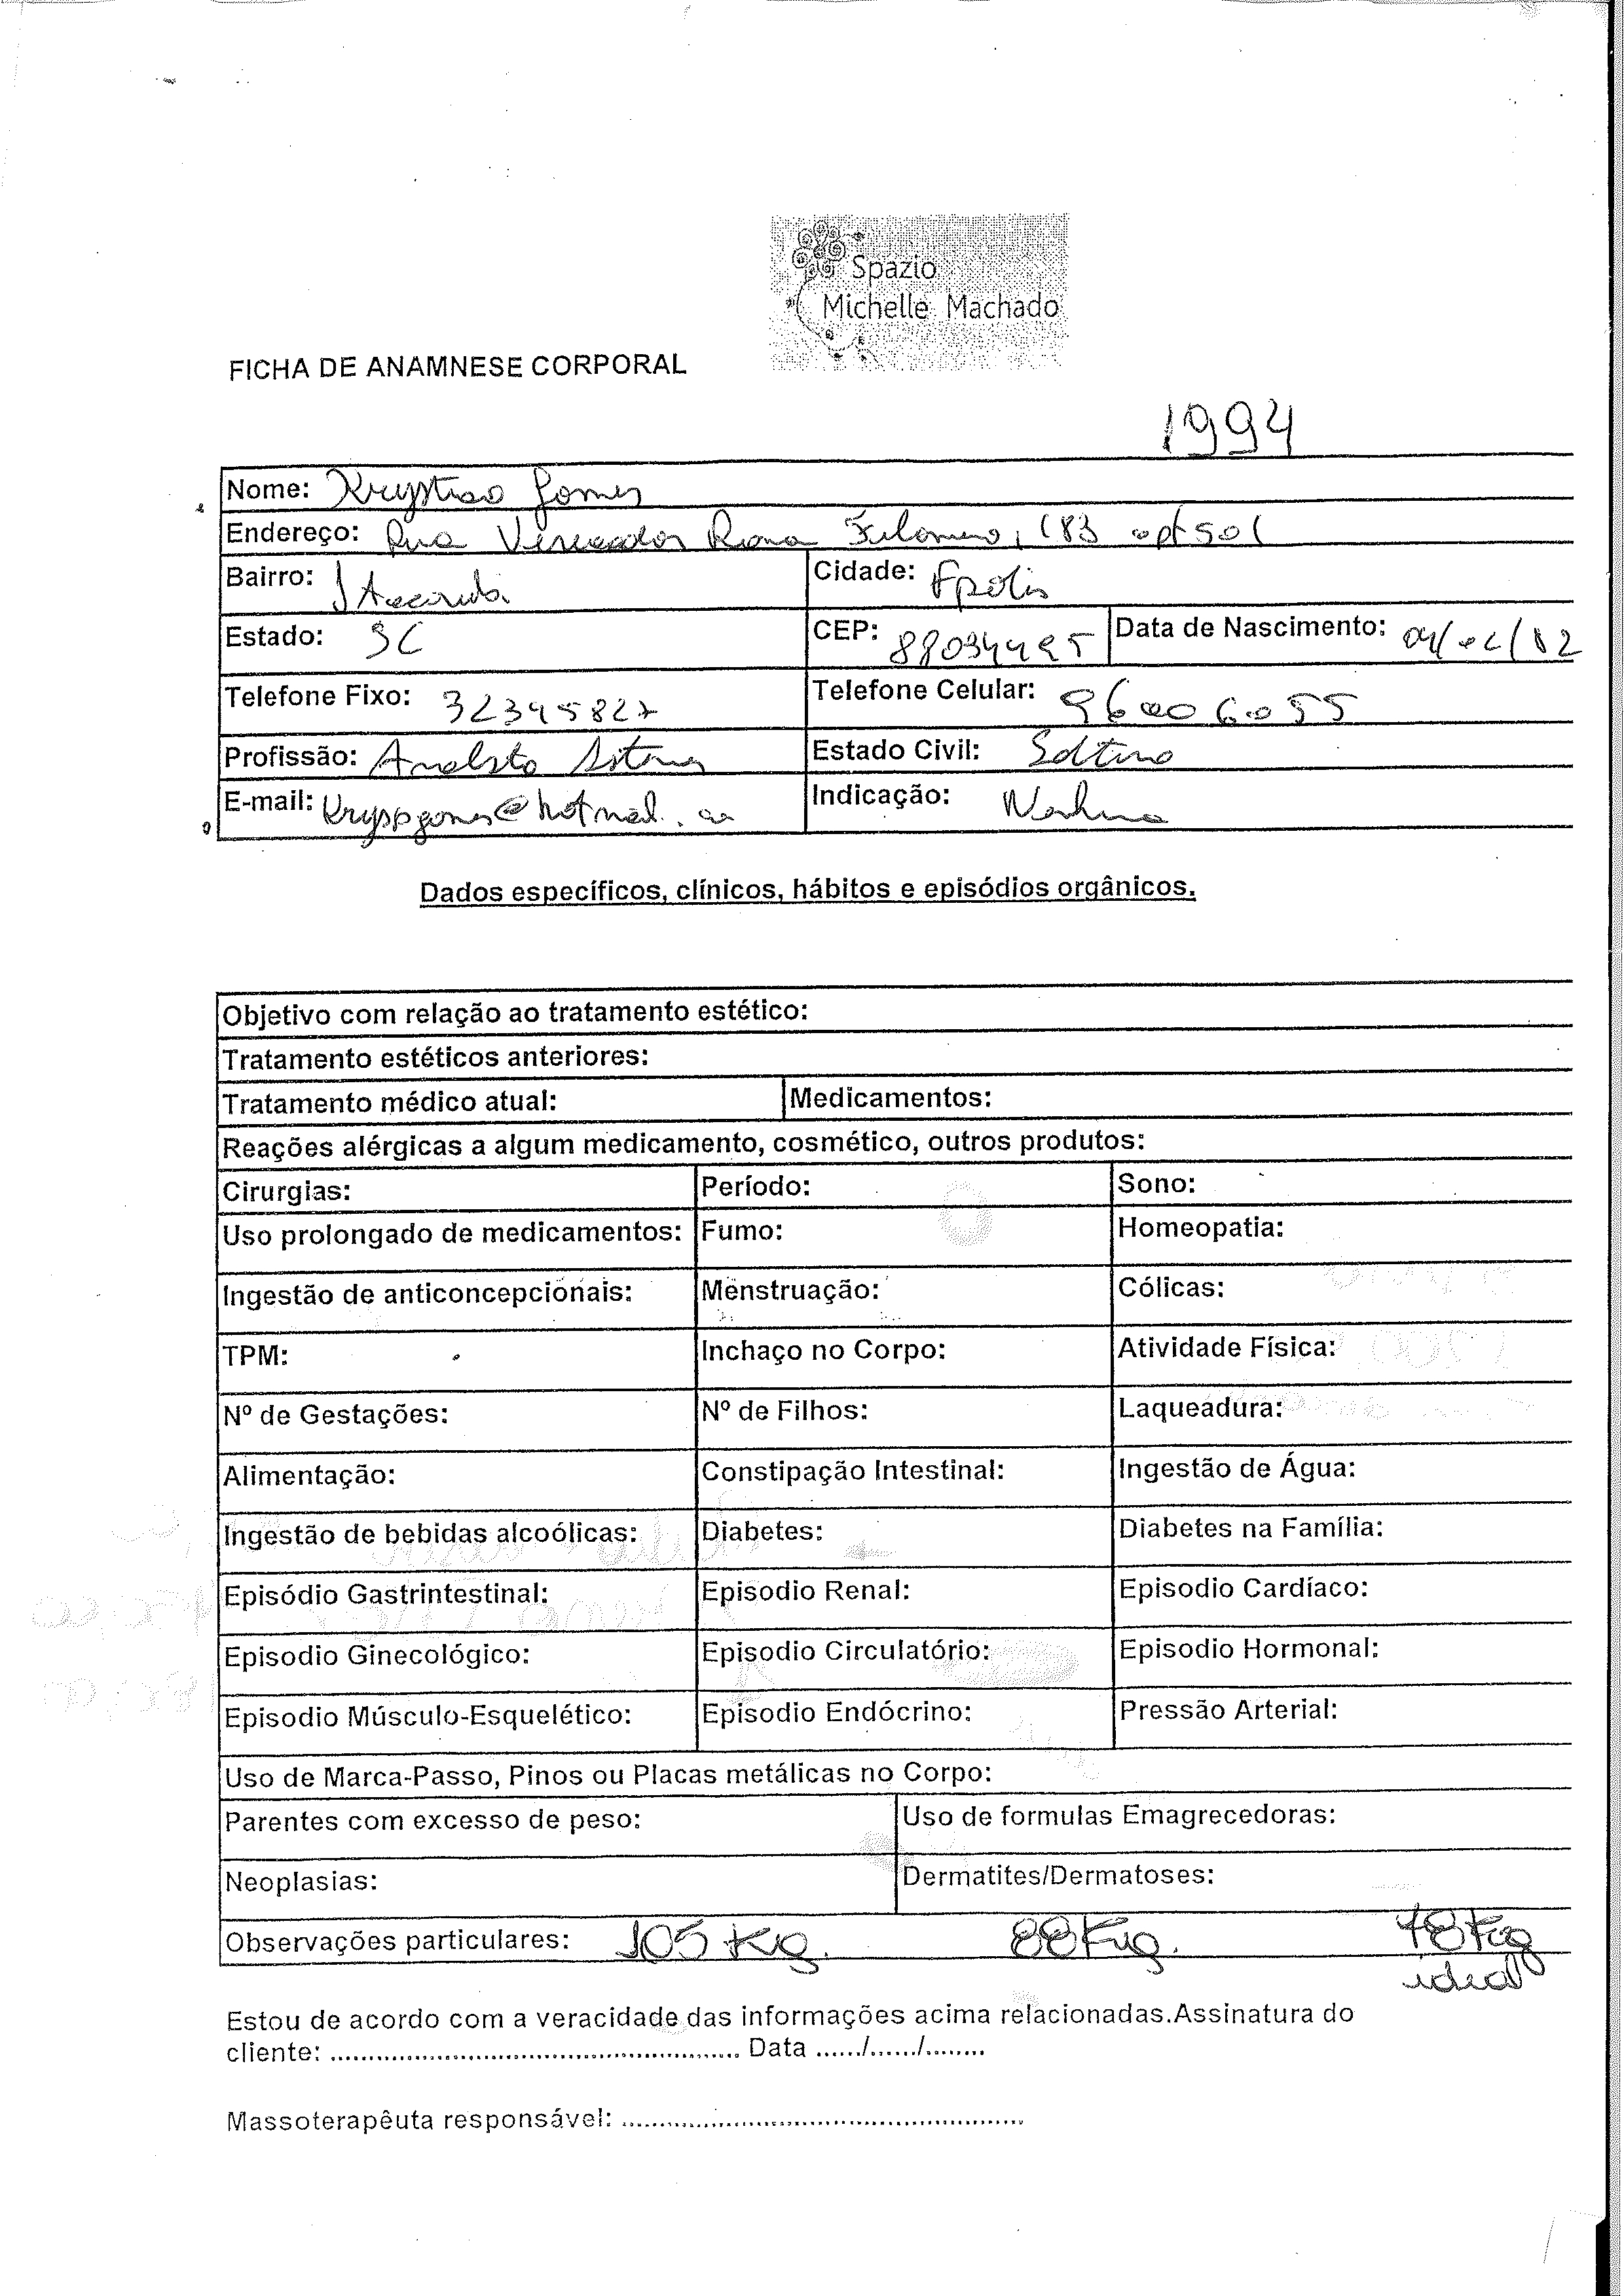 Spazio
Michelle Machado
FICHA DE ANAMNESE CORPORAL
1994
Nome: Gomes
Endereço: Rua Vereador 183 apt 501
Bairro: Cidade: Fpolis
Estado: SC CEP: Data de Nascimento:
Telefone Fixo: 32345827 Telefone Celular:
Profissão: Analista Estado Civil: Solteiro
E-mail: Indicação: Nenhuma
Dados específicos, clínicos, hábitos e episódios orgânicos.
Objetivo com relação ao tratamento estético:
Tratamento estéticos anteriores:
Tratamento médico atual: Medicamentos:
Reações alérgicas a algum medicamento, cosmético, outros produtos:
Cirurgias: Período: Sono:
Uso prolongado de medicamentos: Fumo: Homeopatia:
Ingestão de anticoncepcionais: Menstruação: Cólicas:
TPM: Inchaço no Corpo: Atividade Física:
Nº de Gestações: Nº de Filhos: Laqueadura:
Alimentação: Constipação Intestinal: Ingestão de Água:
Ingestão de bebidas alcoólicas: Diabetes: Diabetes na Família:
Episódio Gastrintestinal: Episodio Renal: Episodio Cardíaco:
Episodio Ginecológico: Episodio Circulatório: Episodio Hormonal:
Episodio Músculo-Esquelético: Episodio Endócrino: Pressão Arterial:
Uso de Marca-Passo, Pinos ou Placas metálicas no Corpo:
Parentes com excesso de peso: Uso de formulas Emagrecedoras:
Neoplasias: Dermatites/Dermatoses:
Observações particulares: 105 Kg. 88 Kg. 78 Kg
ideal
Estou de acordo com a veracidade das informações acima relacionadas.Assinatura do
cliente: ..................................................... Data ....../....../........
Massoterapêuta responsável: ....................................................